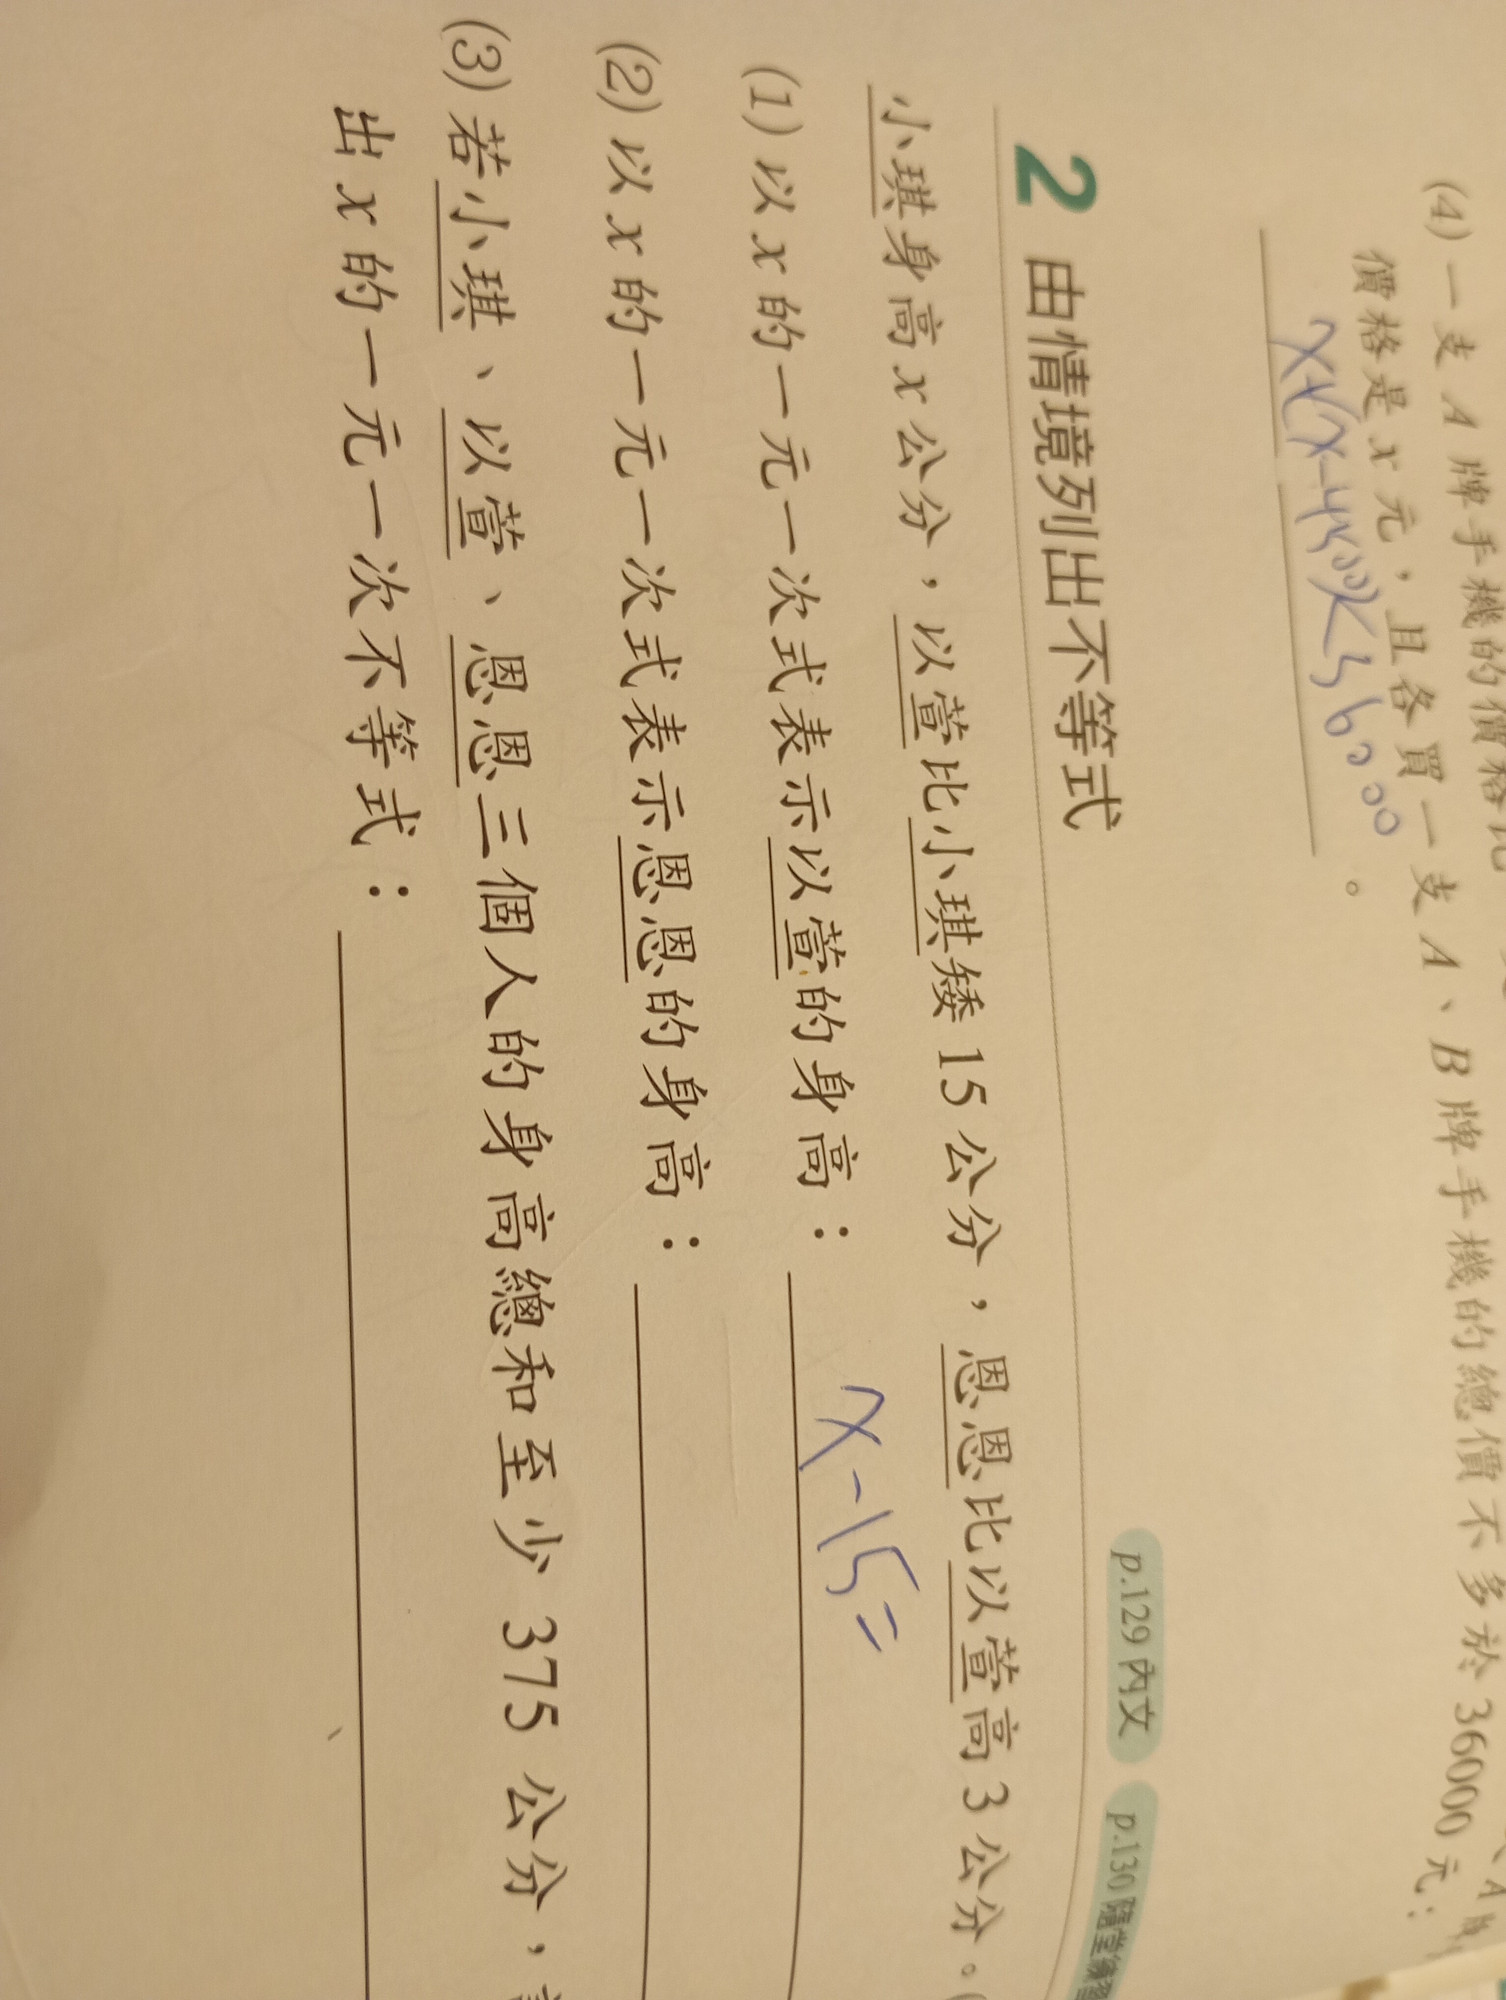 (4) 一支 A 牌手機的價格比
價格是 x 元，且各買一支 A、B 牌手機的總價不多於 36000 元：
x+(x-4500)<36000 。
2 由情境列出不等式 p.129 內文 p.130 隨堂練習
小琪身高 x 公分，以萱比小琪矮 15 公分，恩恩比以萱高 3 公分。(
(1) 以 x 的一元一次式表示以萱的身高： x-15=
(2) 以 x 的一元一次式表示恩恩的身高：
(3) 若小琪、以萱、恩恩三個人的身高總和至少 375 公分，
出 x 的一元一次不等式：